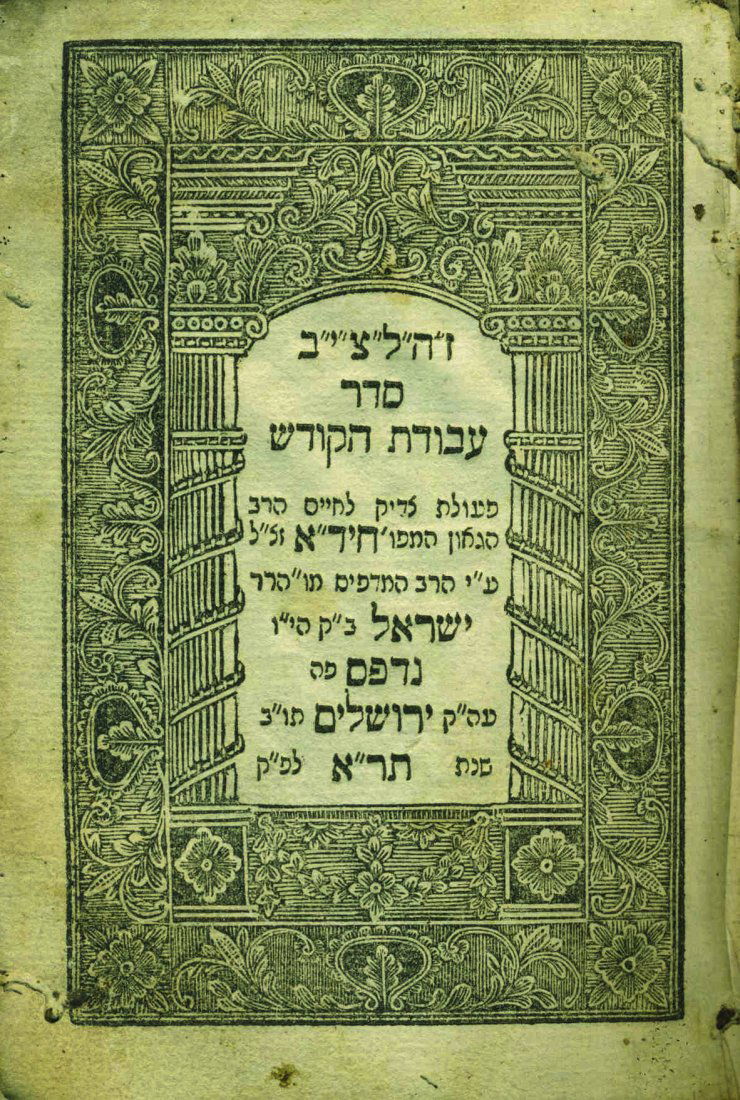 ז״ה״ל״צ״י״ב
סדר
עבודת הקודש
פעולת צדיק לחיים הרב
הגאון המפו׳ חיד״א זצ״ל
ע״י הרב המדפיס מו״הרר
ישראל ב״ק הי״ו
נדפס פה
עה״ק ירושלים תו״ב
שנת תר״א לפ״ק